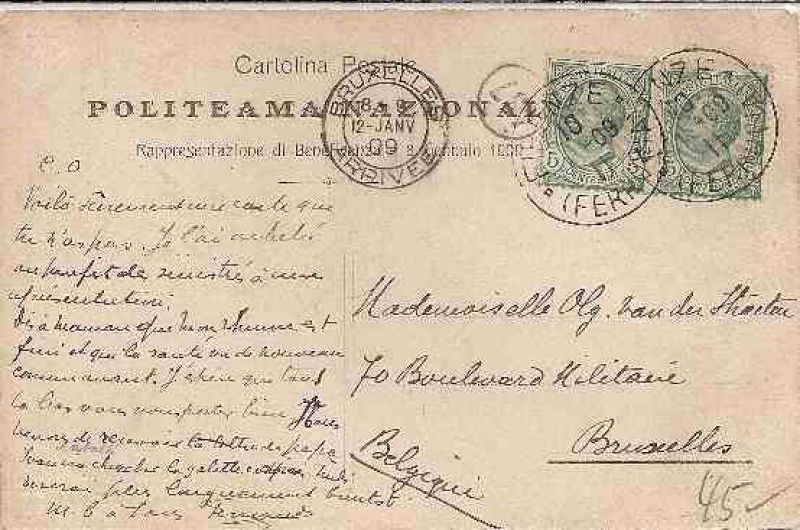 Cartolina Postale
POLITEAMA NAZIONAL
Rappresentazione di Beneficenza 8 Gennaio 1909
BRUXELLES
12-JANV
09
ARRIVEE
FIRENZE
(FERROVIA)
10
09
FIRENZE
(FERROVIA)
09
11
Voilà une carte que
tu n'as pas. Je l'ai acheté
au profit de sinistré à une
représentation.
Dis à maman que mon rhume est
fini et que la santé va de nouveau
J'espère que tous
là bas vous vous portez bien. Nous
venons de recevoir la lettre de papa
chercher la galette
plus longuement bientôt.
Mademoiselle Olg. Van der Straeten
70 Boulevard Militaire
Bruxelles
Belgique
45-